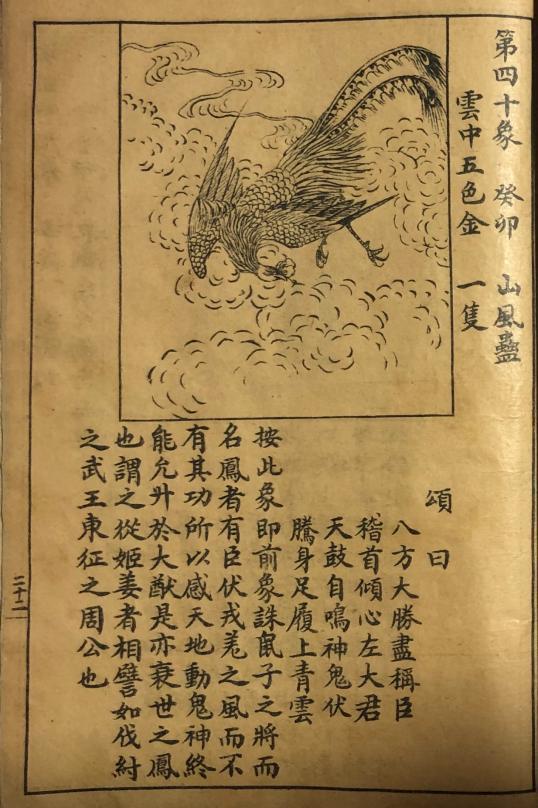 第四十象 癸卯 山風蠱
雲中五色金 一隻
頌曰
八方大勝盡稱臣
稽首傾心左大君
天鼓自鳴神鬼伏
騰身足履上青雲
按此象即前象誅鼠子之將而
名鳳者有臣伏戎羌之風而不
有其功所以感天地動鬼神終
能允升於大猷是亦衰世之鳳
也謂之從姬姜者相譬如伐紂
之武王東征之周公也
二十二